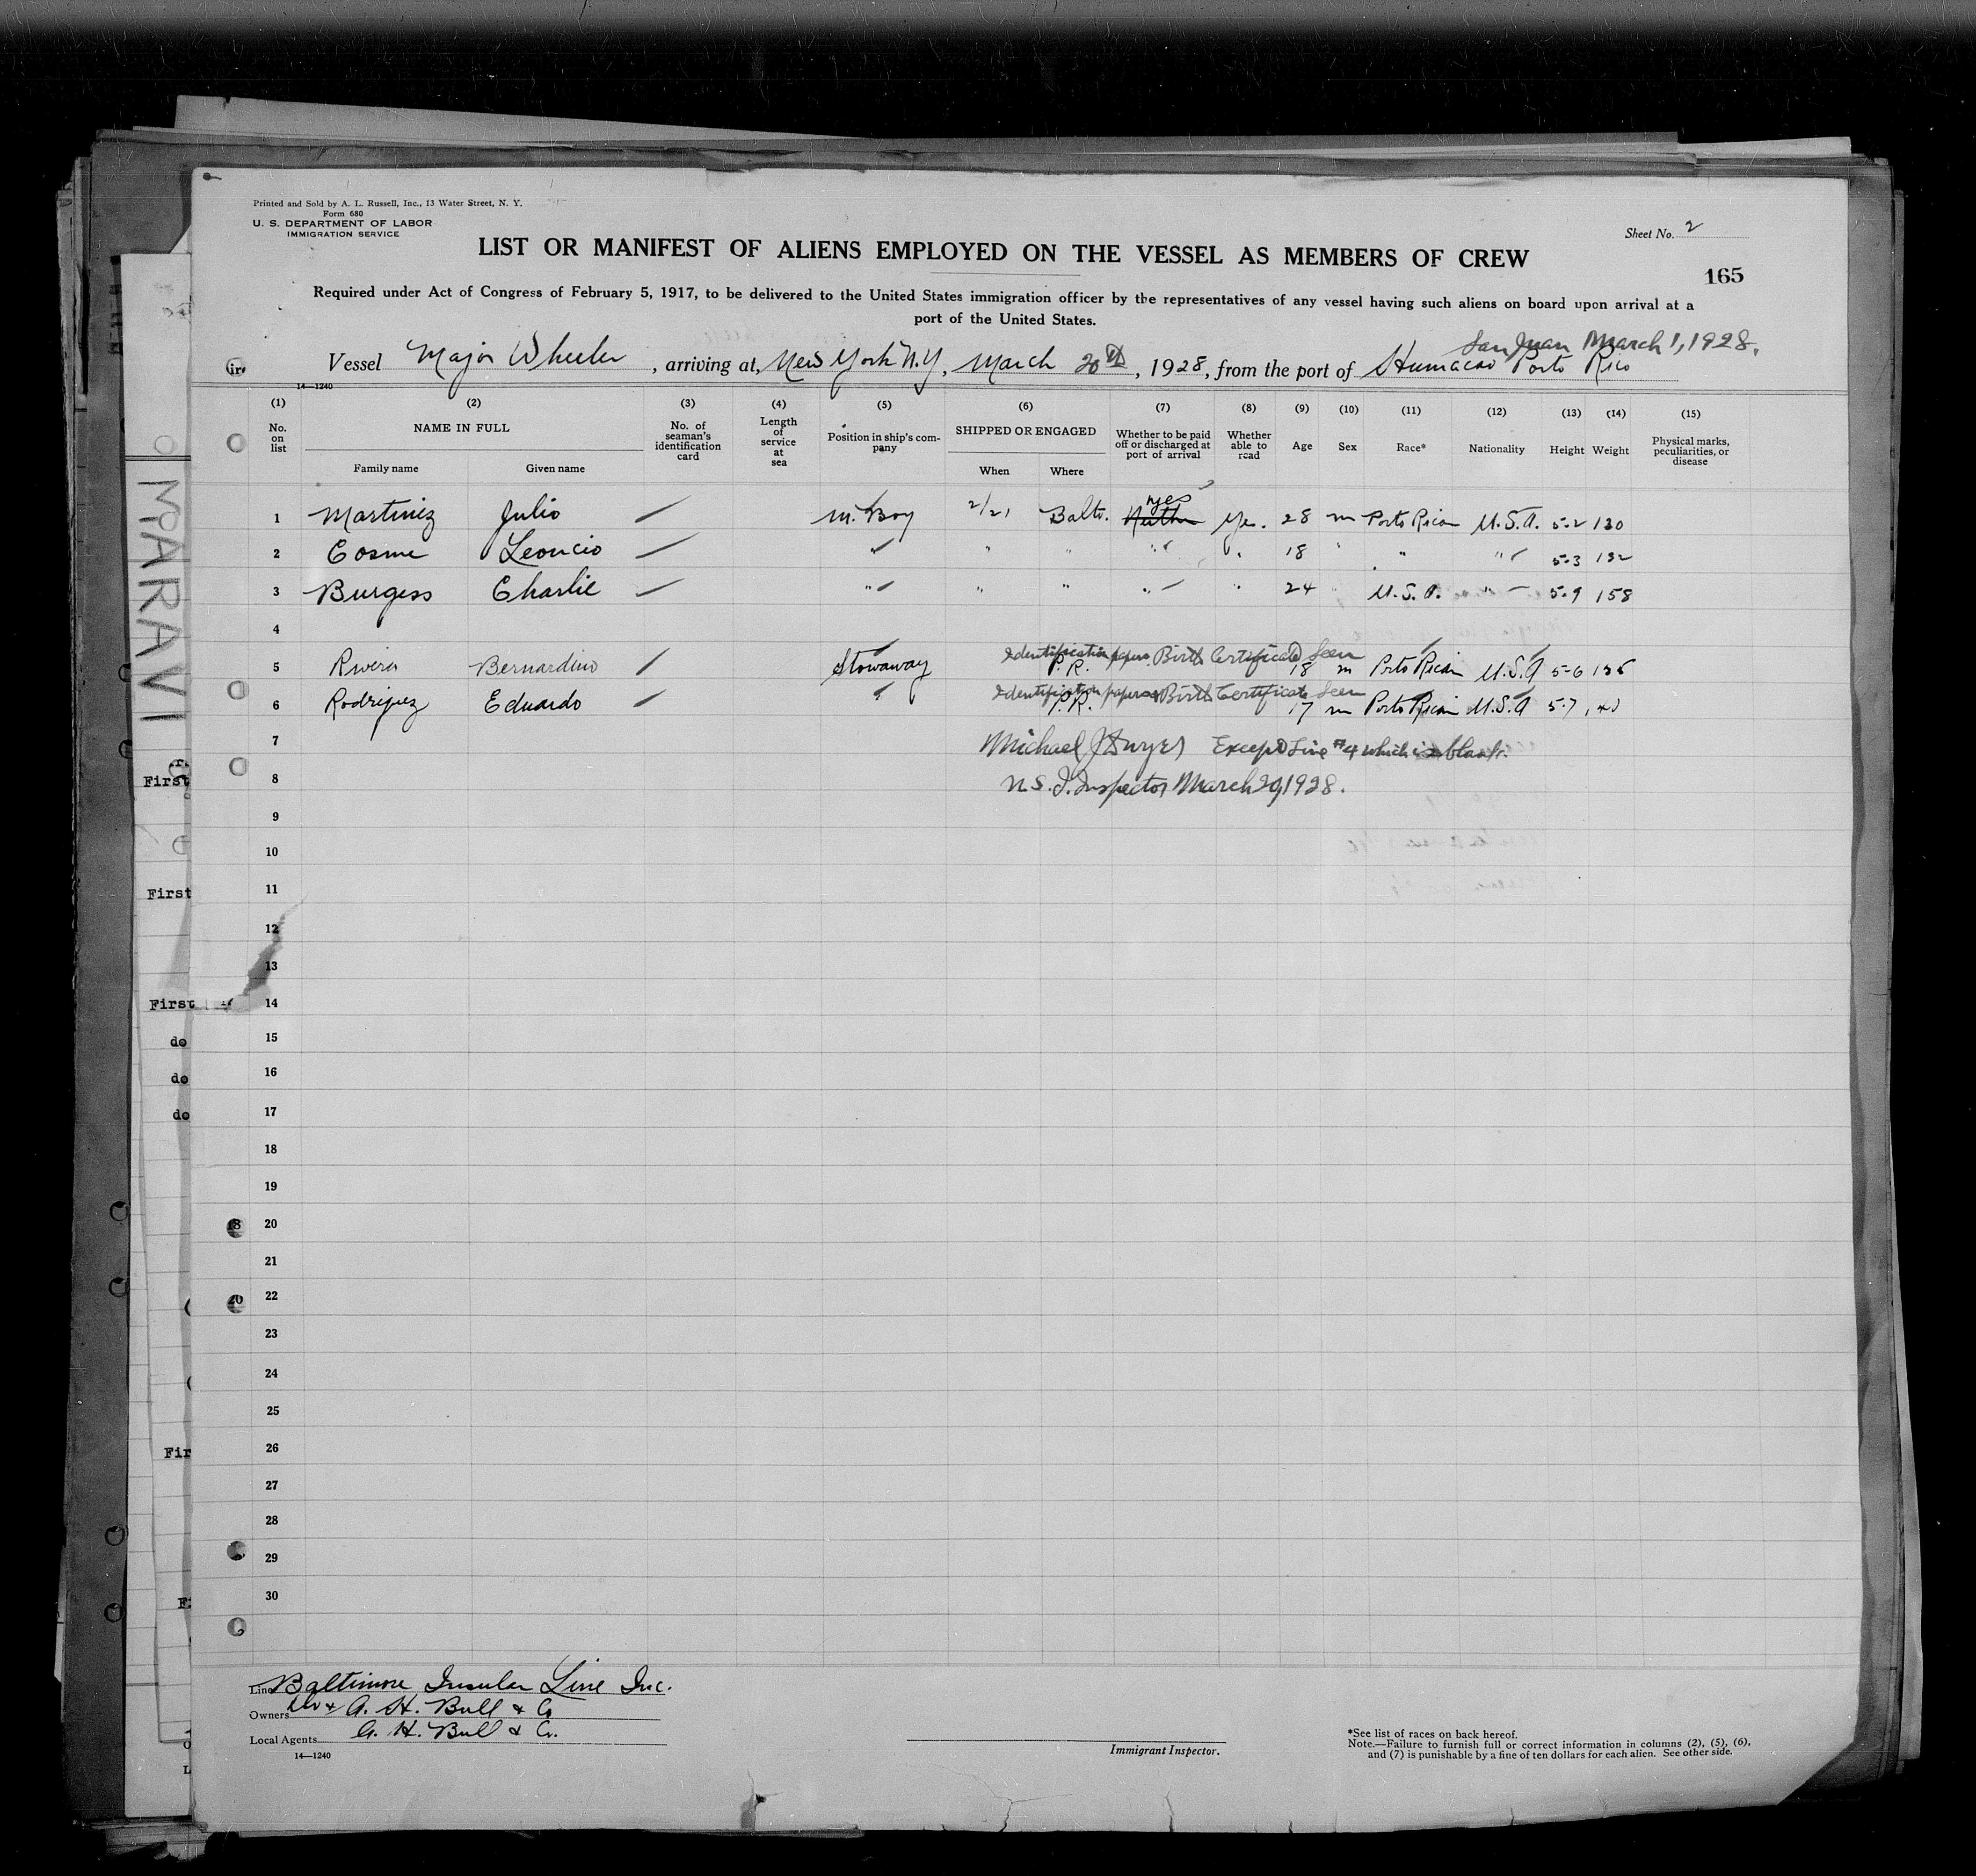 Printed and Sold by A. L. Russell, Inc., 13 Water Street, N. Y.
Form 680
U. S. DEPARTMENT OF LABOR
IMMIGRATION SERVICE
Sheet No. 2
LIST OR MANIFEST OF ALIENS EMPLOYED ON THE VESSEL AS MEMBERS OF CREW
165
Required under Act of Congress of February 5, 1917, to be delivered to the United States immigration officer by the representatives of any vessel having such aliens on board upon arrival at a
port of the United States.
San Juan March 1, 1928.
Vessel Major Wheeler, arriving at, New York N.Y, March 20th, 1928, from the port of Humacao Porto Rico
14—1240
(1) (2) (3) (4) (5) (6) (7) (8) (9) (10) (11) (12) (13) (14) (15)
No. on list NAME IN FULL Family name Given name No. of seaman's identification card Length of service at sea Position in ship's company SHIPPED OR ENGAGED When Where Whether to be paid off or discharged at port of arrival Whether able to read Age Sex Race* Nationality Height Weight Physical marks, peculiarities, or disease
yes
1 Martinez Julio M. Boy 2/21 Balto. Neither Yes. 28 m Porto Rican U.S.A. 5-2 130
2 Cosme Leoncio " " " " " 18 " " " 5-3 132
3 Burgess Charlie " " " " " 24 " U.S.A. " 5-9 158
4
Identification papers Birth Certificate Seen
5 Rivera Bernardino Stowaway P.R. 18 m Porto Rican U.S.A 5-6
Identification papers Birth Certificate Seen
6 Rodriguez Eduardo " P.R. 17 m Porto Rican U.S.A 5-7
7 Michael J Dwyer Except Line #4 which is blank.
8 Inspector March 20, 1928.
9
10
11
12
13
14
15
16
17
18
19
20
21
22
23
24
25
26
27
28
29
30
Line Baltimore Insular Line Inc.
Owners A. H. Bull & Co
Local Agents A. H. Bull & Co.
14—1240
Immigrant Inspector.
*See list of races on back hereof.
Note.—Failure to furnish full or correct information in columns (2), (5), (6),
and (7) is punishable by a fine of ten dollars for each alien. See other side.
MARAVI
First
First
First
do
do
do
Fir
18
20